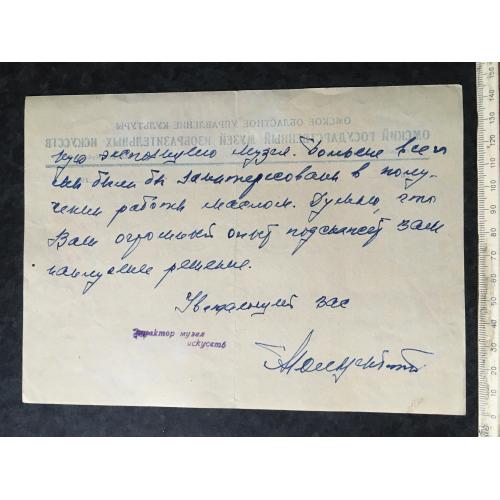 ОМСКОЕ ОБЛАСТНОЕ УПРАВЛЕНИЕ КУЛЬТУРЫ
ОМСКИЙ ГОСУДАРСТВЕННЫЙ МУЗЕЙ ИЗОБРАЗИТЕЛЬНЫХ ИСКУССТВ
ную экспозицию музея. Больше всего
мы были бы заинтересованы в полу-
чении работы маслом. Думаю, что
Ваш огромный опыт подскажет Вам
наилучшее решение.
Уважающий Вас
Директор музея
искусств